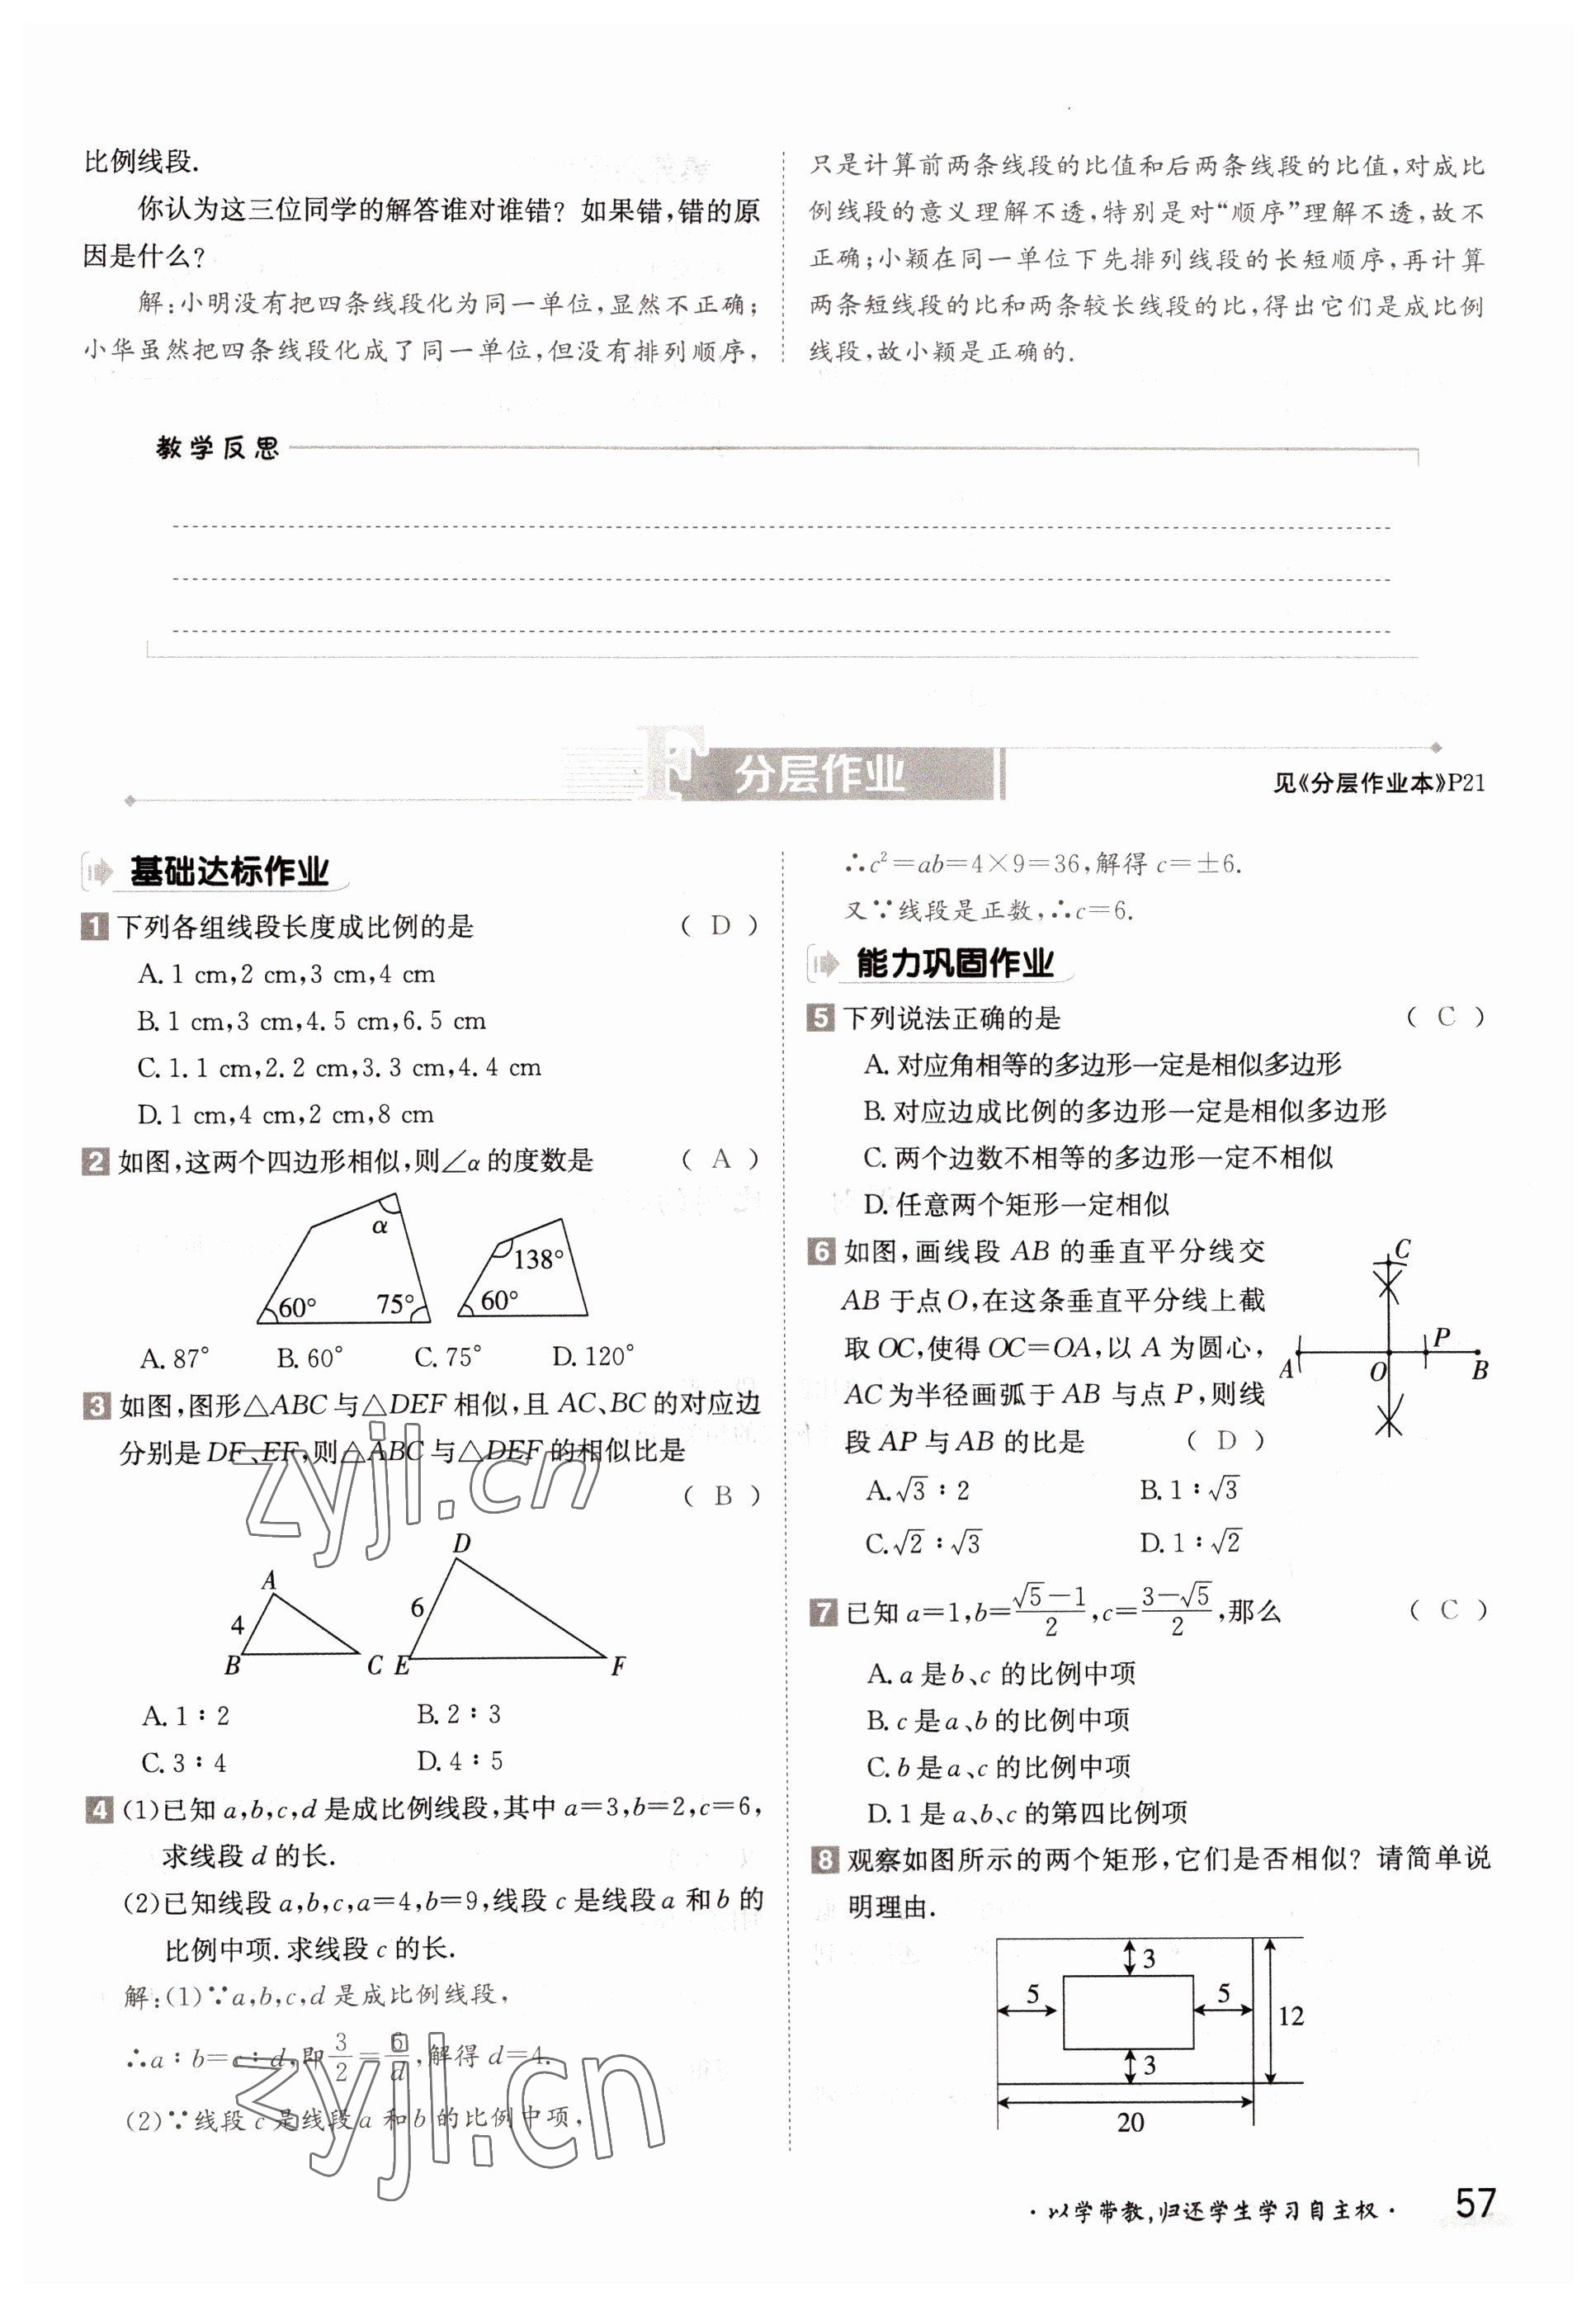 比例线段.
你认为这三位同学的解答谁对谁错？如果错,错的原
因是什么?
解:小明没有把四条线段化为同一单位,显然不正确;
小华虽然把四条线段化成了同一单位,但没有排列顺序,
只是计算前两条线段的比值和后两条线段的比值,对成比
例线段的意义理解不透,特别是对“顺序”理解不透,故不
正确;小颖在同一单位下先排列线段的长短顺序,再计算
两条短线段的比和两条较长线段的比,得出它们是成比例
线段,故小颖是正确的.
教学反思
F 分层作业
见《分层作业本》P21
基础达标作业
1 下列各组线段长度成比例的是 ( D )
A. 1 cm,2 cm,3 cm,4 cm
B. 1 cm,3 cm,4. 5 cm,6. 5 cm
C. 1. 1 cm,2. 2 cm,3. 3 cm,4. 4 cm
D. 1 cm,4 cm,2 cm,8 cm
2 如图,这两个四边形相似,则∠α的度数是 ( A )
α
60° 75°
138°
60°
A. 87° B. 60° C. 75° D. 120°
3 如图,图形△ABC与△DEF相似,且AC、BC的对应边
分别是DF、EF,则△ABC与△DEF的相似比是
( B )
A
4
B C
D
6
E F
A. 1∶2 B. 2∶3
C. 3∶4 D. 4∶5
4 (1)已知a,b,c,d是成比例线段,其中a=3,b=2,c=6,
求线段d的长.
(2)已知线段a,b,c,a=4,b=9,线段c是线段a和b的
比例中项.求线段c的长.
解:(1)∵a,b,c,d是成比例线段,
∴a∶b=c∶d,即3/2=6/d,解得d=4.
(2)∵线段c是线段a和b的比例中项,
∴c²=ab=4×9=36,解得c=±6.
又∵线段是正数,∴c=6.
能力巩固作业
5 下列说法正确的是 ( C )
A. 对应角相等的多边形一定是相似多边形
B. 对应边成比例的多边形一定是相似多边形
C. 两个边数不相等的多边形一定不相似
D. 任意两个矩形一定相似
6 如图,画线段AB的垂直平分线交
AB于点O,在这条垂直平分线上截
取OC,使得OC=OA,以A为圆心,
AC为半径画弧于AB与点P,则线
段AP与AB的比是 ( D )
C
P
A O B
A. √3∶2 B. 1∶√3
C. √2∶√3 D. 1∶√2
7 已知a=1,b=(√5-1)/2,c=(3-√5)/2,那么 ( C )
A. a是b、c的比例中项
B. c是a、b的比例中项
C. b是a、c的比例中项
D. 1是a、b、c的第四比例项
8 观察如图所示的两个矩形,它们是否相似？请简单说
明理由.
3
5 5
12
3
20
zyjl.cn
zyjl.cn
·以学带教,归还学生学习自主权· 57